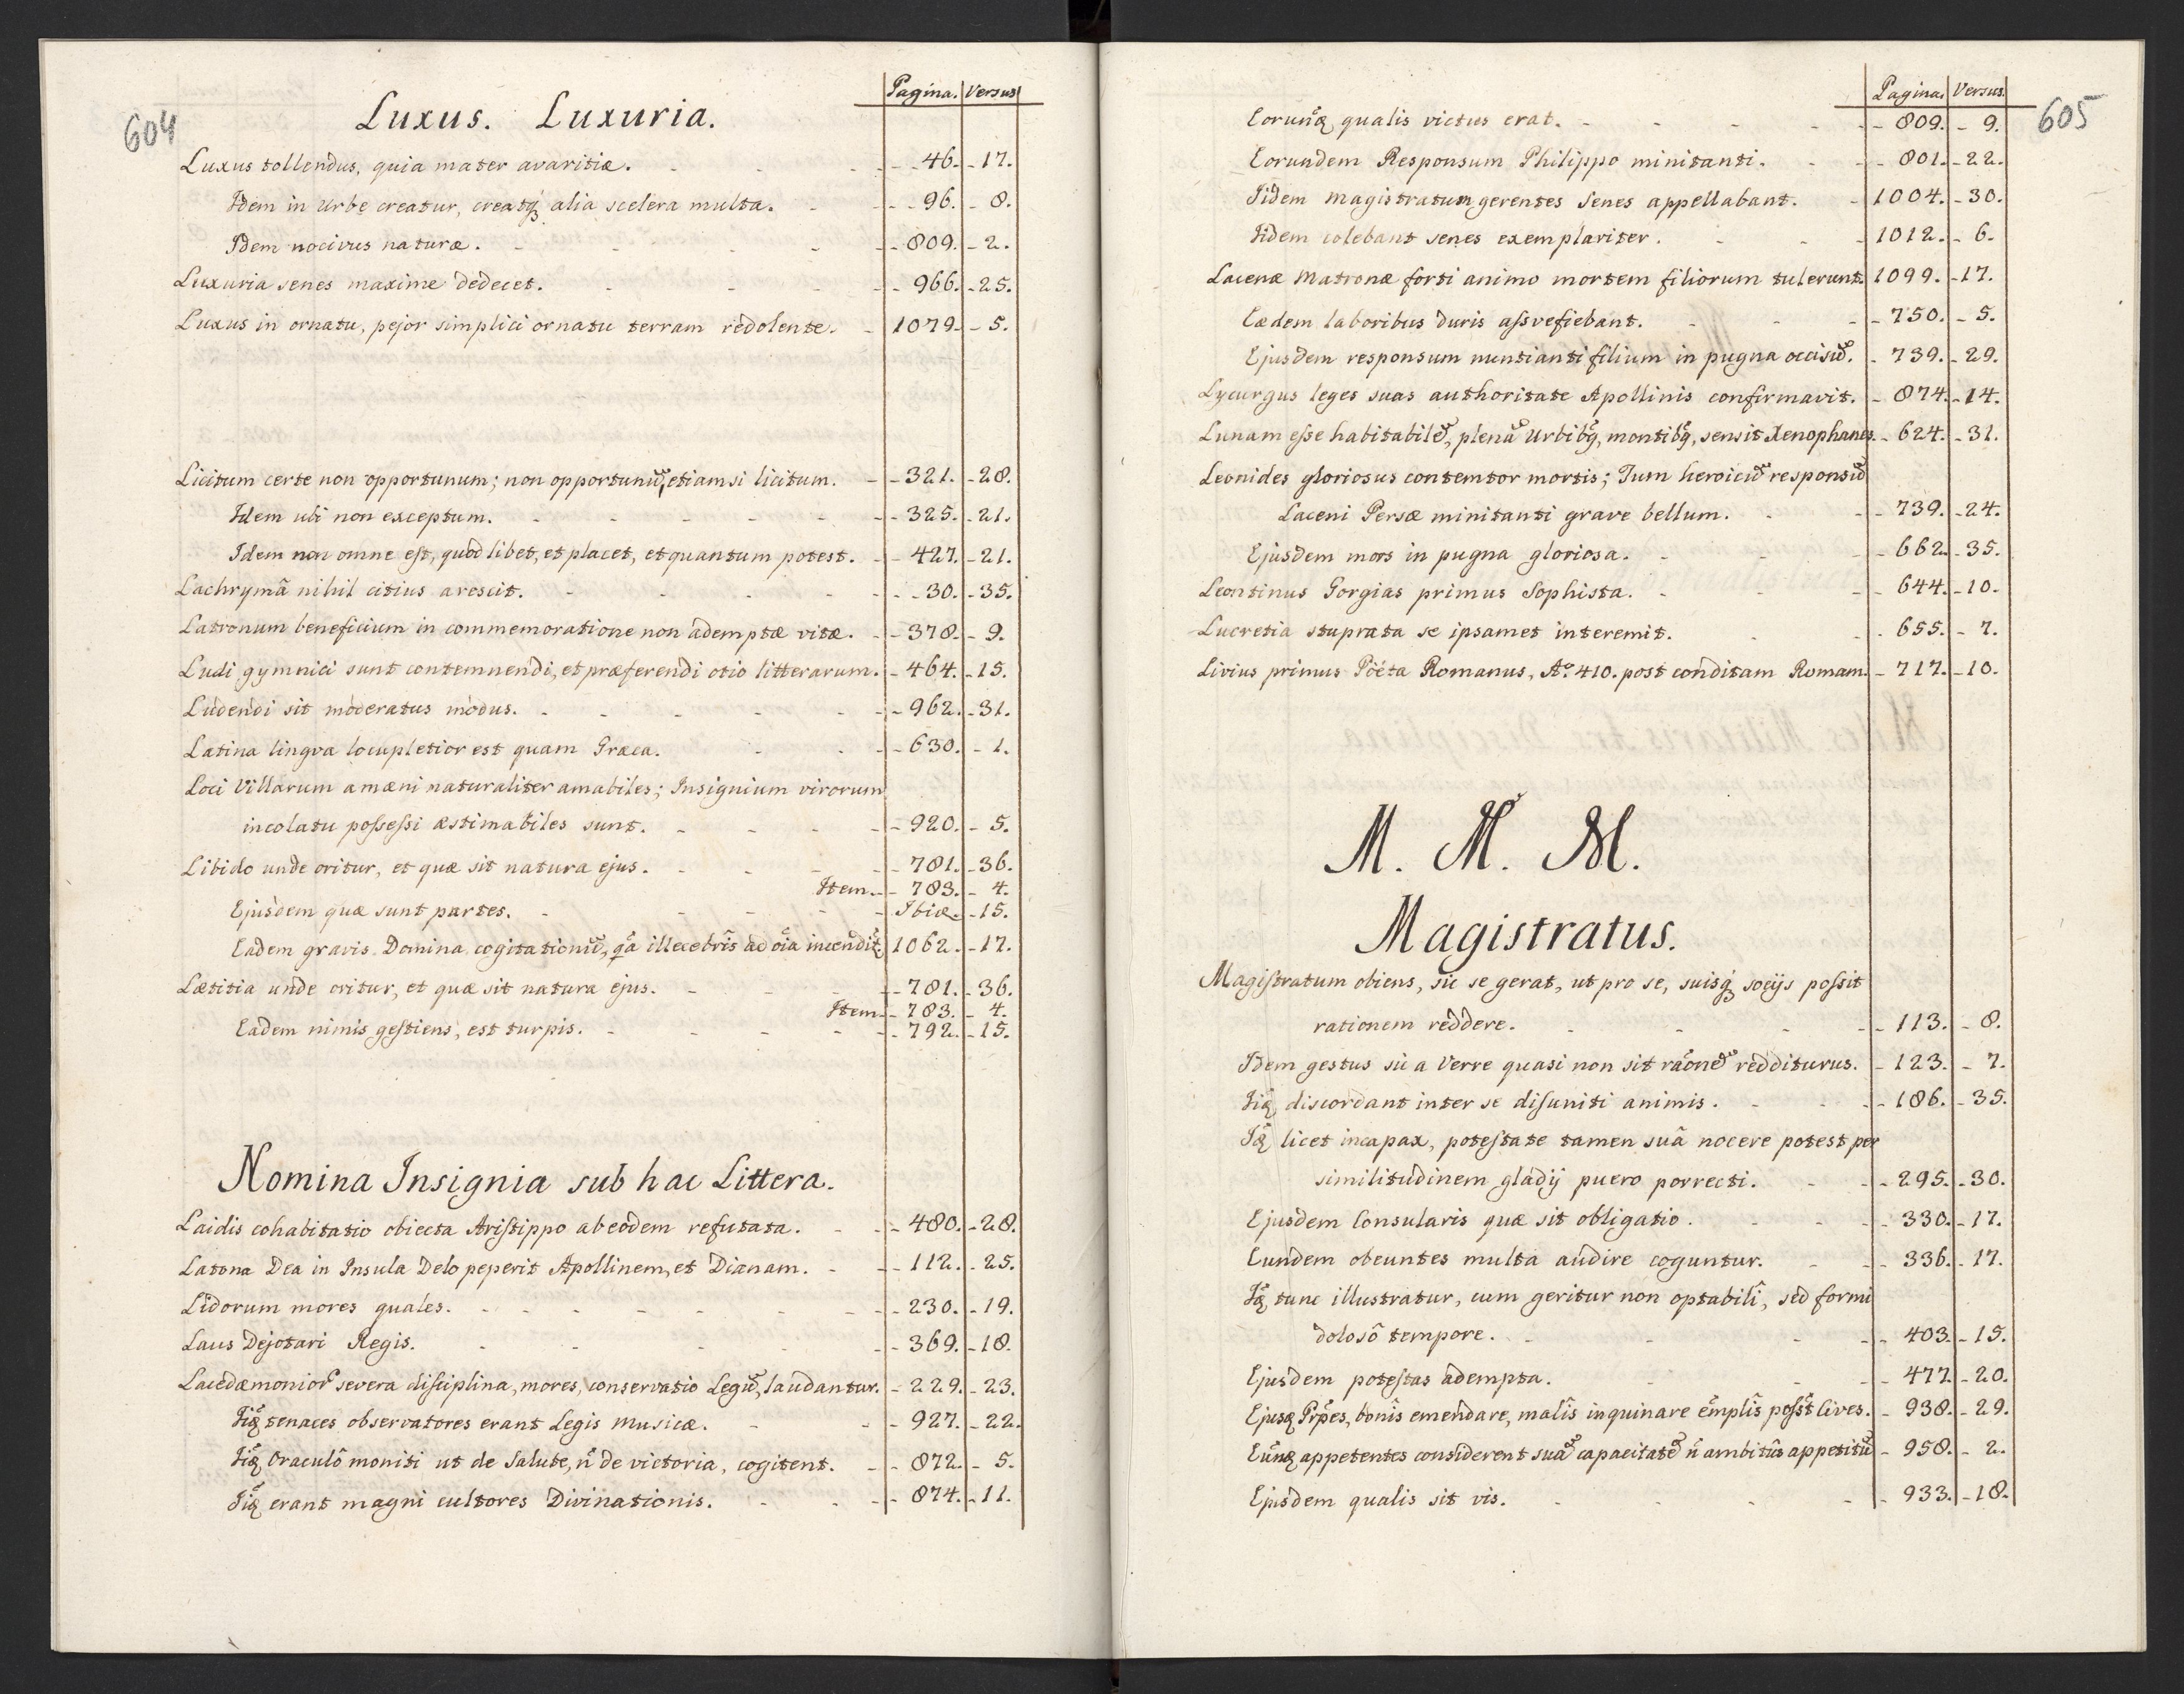 604
Pagina. Versus
Luxus. Luxuria.
Luxus tollendus, quia mater avaritiæ. 46. 17.
Idem in Urbe creatur, creatq́ꝫ alia scelera multa. 96. 8.
Idem nocivus naturæ. 809. 2.
Luxuria senes maxime dedecet. 966. 25.
Luxus in ornatu, pejor simplici ornatu terram redolente. 1079. 5.
Licitum certe non opportunum; non opportunũ, etiamsi licitum. 321. 28.
Idem ubi non exceptum. 325. 21.
Idem non omne est, quod libet, et placet, et quantum potest. 427. 21.
Lachrymâ nihil citius arescit. 30. 35.
Latronum beneficium in commemoratione non ademptæ vitæ. 378. 9.
Ludi gymnici sunt contemnendi, et præferendi otio litterarum. 464. 15.
Ludendi sit moderatus modus. 962. 31.
Latina lingva locupletior est quam Græca. 630. 1.
Loci Villarum amæni naturaliter amabiles; Insignium virorum
incolatu possessi æstimabiles sunt. 920. 5.
Libido unde oritur, et quæ sit natura ejus. 781. 36.
Item 783. 4.
Ejusdem quæ sunt partes. Ibid. 15.
Eadem gravis Domina cogitationũ, qa illecebris ad oia incendit 1062. 17.
Lætitia unde oritur, et quæ sit natura ejus. 781. 36.
Item 783. 4.
Eadem nimis gestiens, est turpis. 792. 15.
Nomina Insignia sub hac Littera.
Laidis cohabitatio obiecta Aristippo ab eodem refutata. 480. 28.
Latona Dea in Insula Delo peperit Apollinem, et Dianam. 112. 25.
Lidorum mores quales. 230. 19.
Laus Dejotari Regis. 369. 18.
Lacedæmonior severa disciplina, mores, conservatio Legũ, laudantur. 229. 23.
Iiꝗ tenaces observatores erant Legis Musicæ. 927. 22.
Iiꝗ Oraculô moniti ut de Salute, ñ de victoria, cogitent. 872. 5.
Iiꝗ erant magni cultores Divinationis. 874. 11.
605
Pagina. Versus.
Eorunꝗ qualis victus erat. 809. 9.
Eorundem Responsum Philippo minitanti. 801. 22.
Iidem Magistratum gerentes Senes appellabant. 1004. 30.
Iidem colebant senes exemplariter. 1012. 6.
Lacenæ Matronæ forti animo mortem filiorum tulerunt. 1099. 17.
Eædem laboribus duris assvefiebant. 750. 5.
Ejusdem responsum nuntianti filium in pugna occisũ. 739. 29.
Lycurgus leges suas authoritate Apollinis confirmavit. 874. 14.
Lunam esse habitabilẽ, plenã Urbibꝗ, montibꝗ, sensit Xenophanes. 624. 31.
Leonides gloriosus contemtor mortis; Tum heroicũ responsũ
Laceni Persæ minitanti grave bellum. 739. 24.
Ejusdem mors in pugna gloriosa. 662. 35.
Leontinus Gorgias primus Sophista. 644. 10.
Lucretia stuprata se ipsamet interemit. 655. 7.
Livius primus Pöéta Romanus, Aº 410. post conditam Romam. 717. 10.
M. M. M.
Magistratus.
Magistratum obiens, sic se gerat, ut pro se, suisq́ꝫ socijs possit
rationem reddere. 113. 8.
Idem gestus sic a Verre quasi non sit raonẽ redditurus. 123. 7.
Iiꝗ discordant inter se disuniti animis. 186. 35.
Iꝗ licet incapax, potestate tamen suâ nocere potest per
similitudinem gladij puero porrecti. 295. 30.
Ejusdem Consularis quæ sit obligatio. 330. 17.
Eundem obeuntes multa audire coguntur. 336. 17.
Iꝗ tunc illustratur, cum geritur non optabili, sed formi
dolosô tempore. 403. 15.
Ejusdem potestas adempta. 477. 20.
Ejusꝗ Prpes, bonis emendare, malis inquinare emplis posst Cives. 938. 29.
Eunꝗ appetentes considerent suã capacitatẽ ñ ambitûs appetitũ 958. 2.
Ejusdem qualis sit vis. 933. 18.